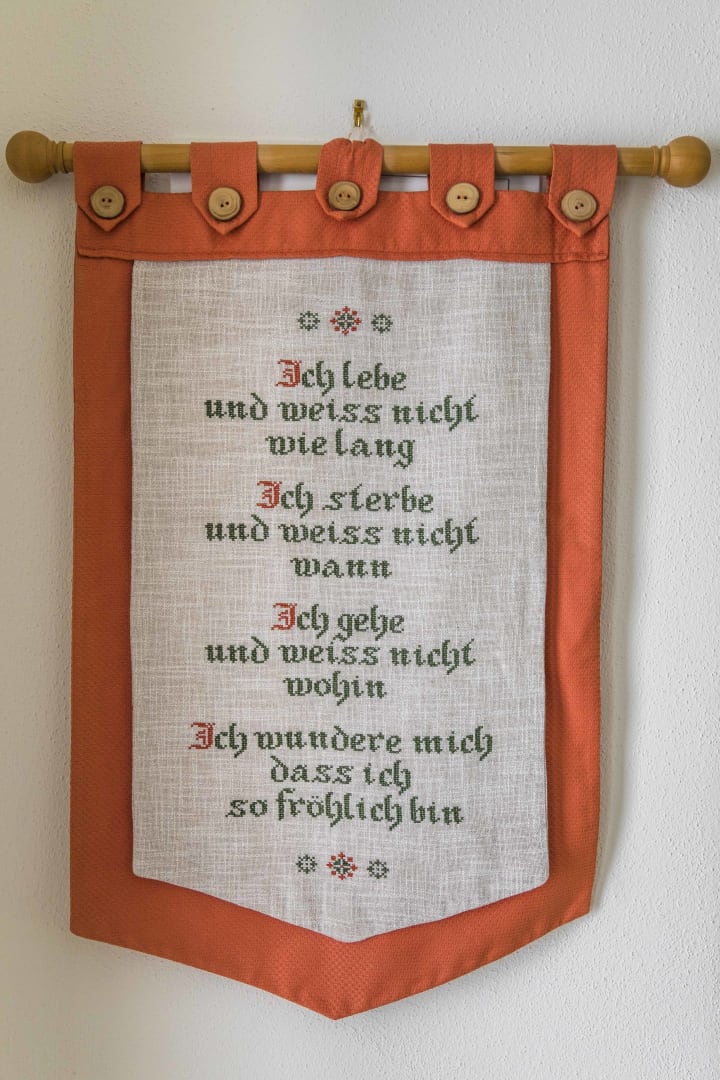 Ich lebe
und weiss nicht
wie lang
Ich sterbe
und weiss nicht
wann
Ich gehe
und weiss nicht
wohin
Ich wundere mich
dass ich
so fröhlich bin